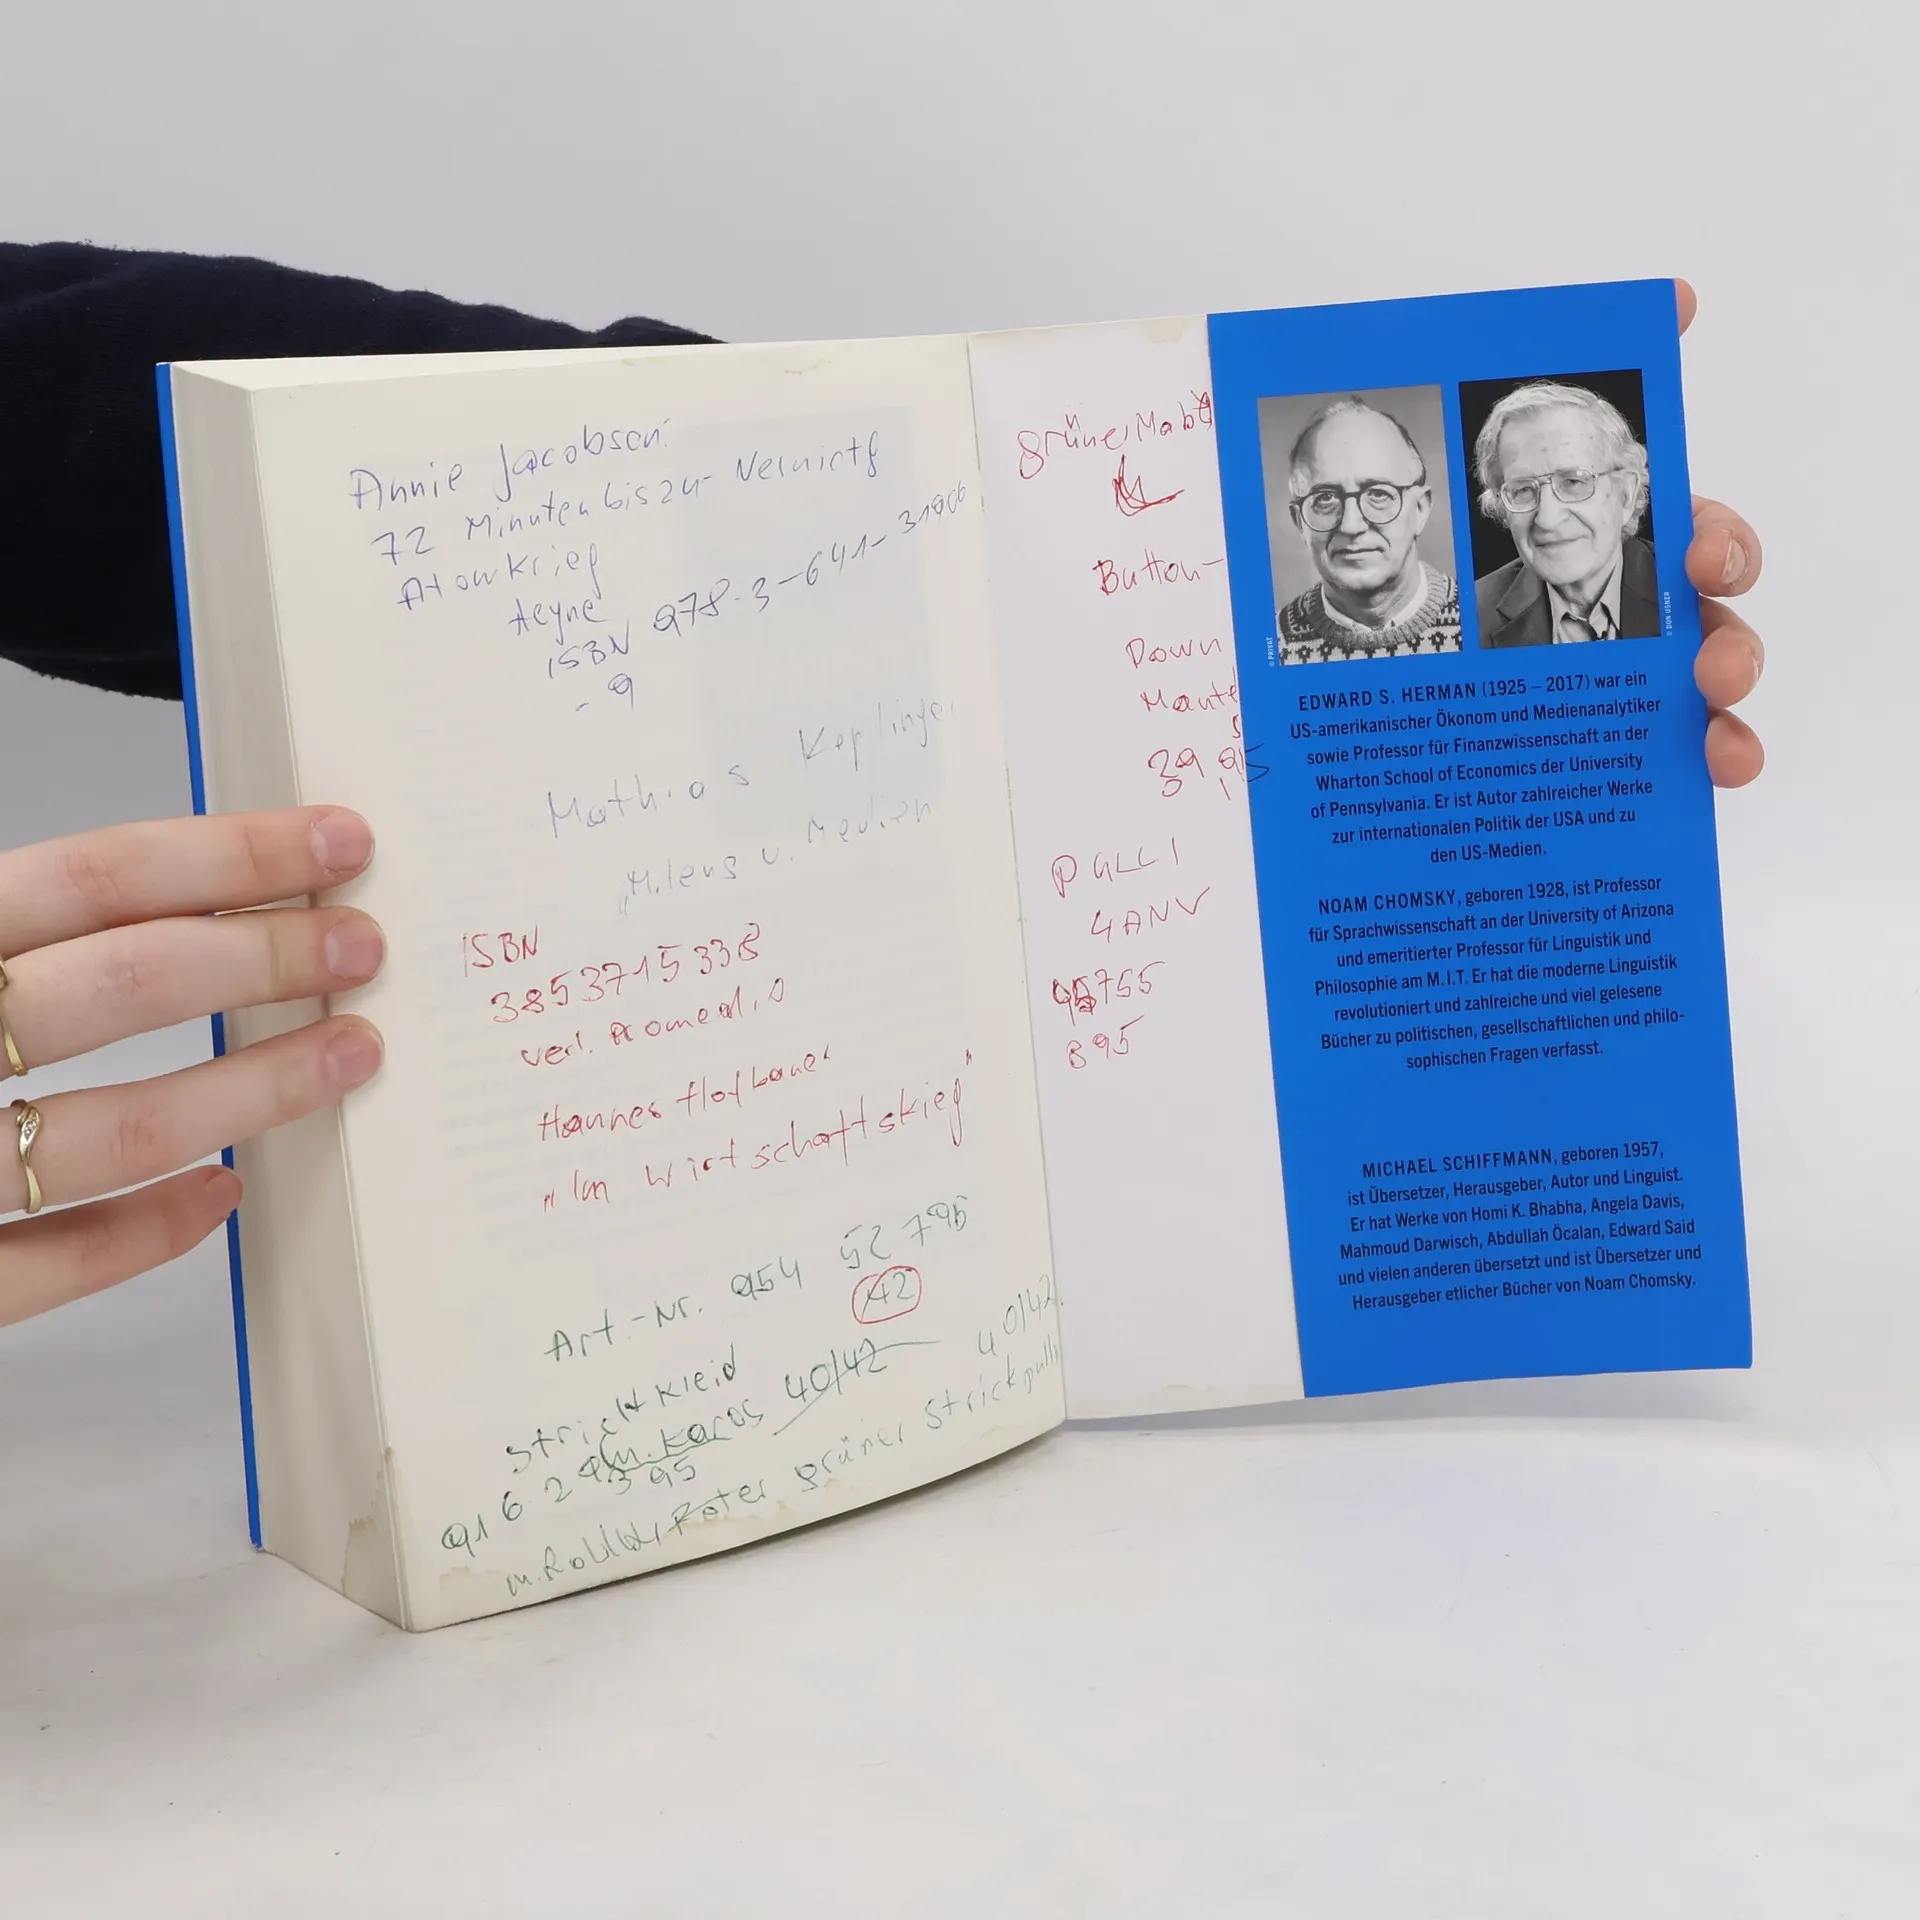 Annie Jacobsen:
72 Minuten bis zur Vernichtg
Atomkrieg
Heyne
ISBN 978-3-641-31906
- 9
Mathias Keplinger
„Milens v. Medien
ISBN
3853715338
verl. Promedio
Hannes Hofbauer
„Im Wirtschaftskieg"
Art.-Nr. 954 52 795
42
Strickkleid
m. Karos 40/42 40/42
91 6 2 395
m. Rollk, Roter grüner Strickpulli
grüne
Button-
Down
Mante
39,95
PULLI
4 ANV
755
895
© PRIVAT
© DON USNER
EDWARD S. HERMAN (1925 – 2017) war ein
US-amerikanischer Ökonom und Medienanalytiker
sowie Professor für Finanzwissenschaft an der
Wharton School of Economics der University
of Pennsylvania. Er ist Autor zahlreicher Werke
zur internationalen Politik der USA und zu
den US-Medien.
NOAM CHOMSKY, geboren 1928, ist Professor
für Sprachwissenschaft an der University of Arizona
und emeritierter Professor für Linguistik und
Philosophie am M.I.T. Er hat die moderne Linguistik
revolutioniert und zahlreiche und viel gelesene
Bücher zu politischen, gesellschaftlichen und philo-
sophischen Fragen verfasst.
MICHAEL SCHIFFMANN, geboren 1957,
ist Übersetzer, Herausgeber, Autor und Linguist.
Er hat Werke von Homi K. Bhabha, Angela Davis,
Mahmoud Darwisch, Abdullah Öcalan, Edward Said
und vielen anderen übersetzt und ist Übersetzer und
Herausgeber etlicher Bücher von Noam Chomsky.